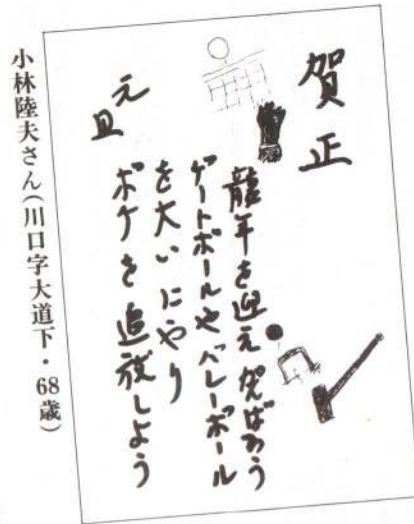 賀正
龍年を迎えがんばろう
ゲートボールやバレーボール
を大いにやり
ボケを追放しよう
元旦
小林陸夫さん(川口字大道下・68歳)